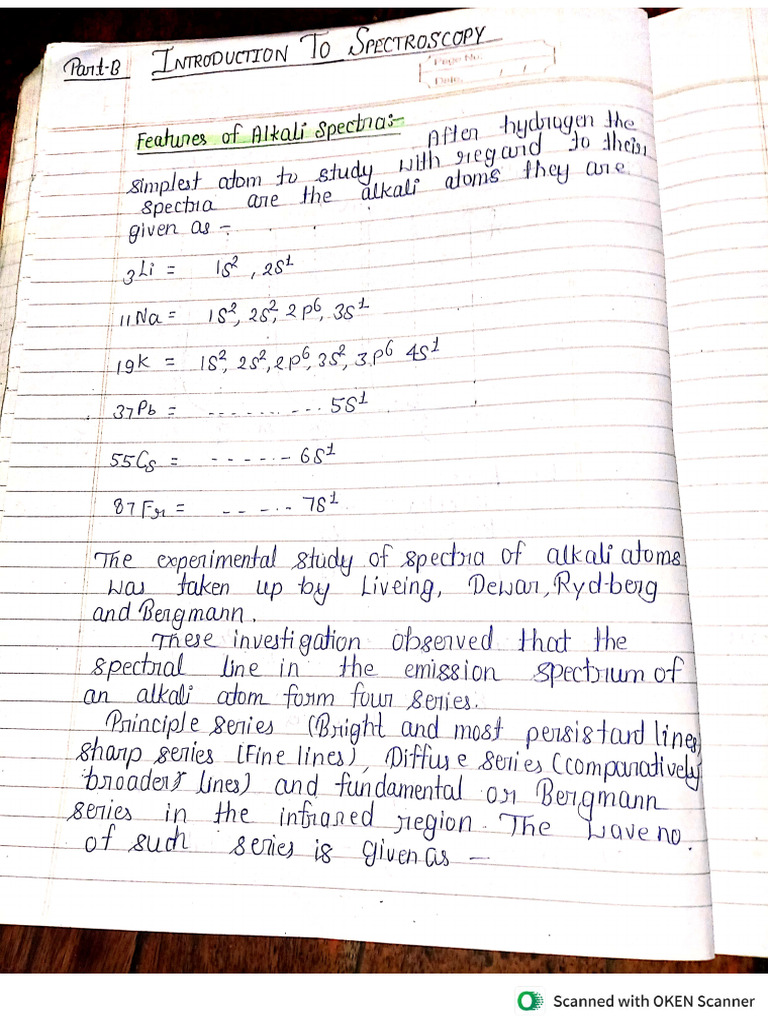 Part-B INTRODUCTION TO SPECTROSCOPY
Page No.
Date / /
Features of Alkali Spectra:- After hydrogen the
simplest atom to study with regard to their
spectra are the alkali atoms they are
given as -
₃Li = 1S², 2S¹
₁₁Na = 1S², 2S², 2P⁶, 3S¹
₁₉K = 1S², 2S², 2P⁶, 3S², 3P⁶ 4S¹
₃₇Pb = ......... 5S¹
₅₅Cs = ------ 6S¹
₈₇Fr = ----- 7S¹
The experimental study of spectra of alkali atoms
was taken up by Liveing, Dewar, Rydberg
and Bergmann.
These investigation observed that the
spectral line in the emission spectrum of
an alkali atom form four series.
Principle series (Bright and most persistard lines)
sharp series (Fine lines), Diffuse series (comparatively
broader lines) and fundamental or Bergmann
series in the infrared region. The wave no.
of such series is given as -
Scanned with OKEN Scanner